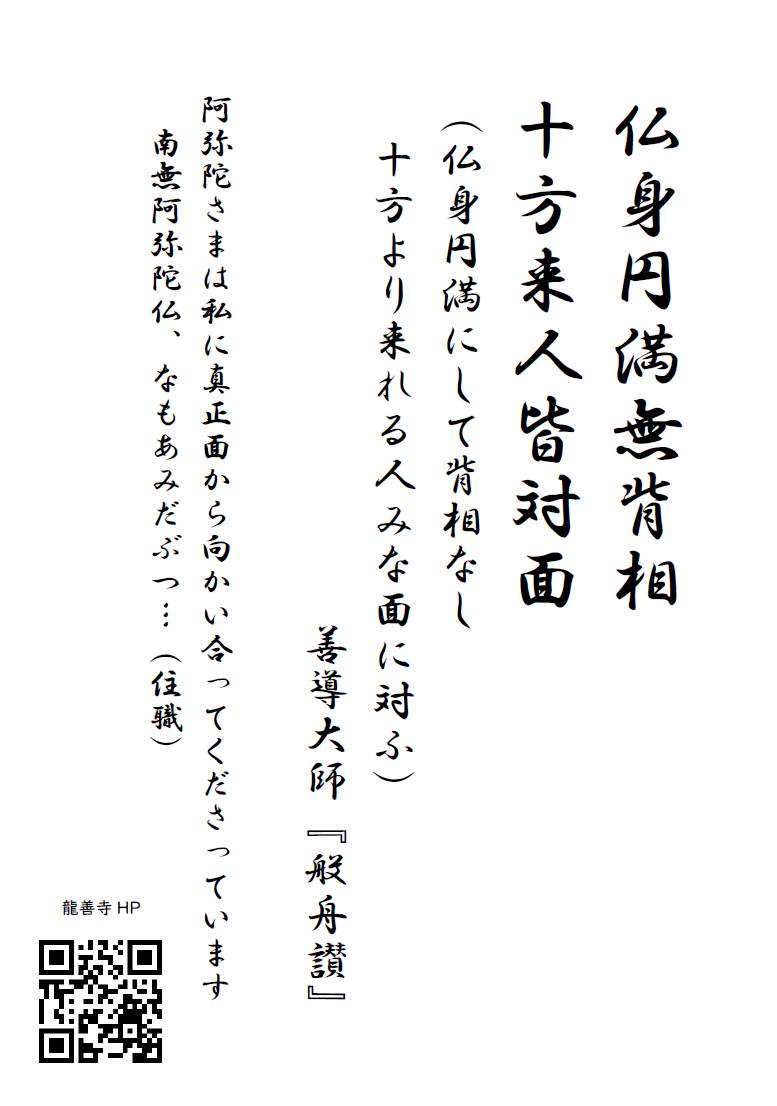 仏身円満無背相
十方来人皆対面
（仏身円満にして背相なし
十方より来れる人みな面に対ふ）
善導大師『般舟讃』
阿弥陀さまは私に真正面から向かい合ってくださっています
南無阿弥陀仏、なもあみだぶつ…（住職）
龍善寺 HP